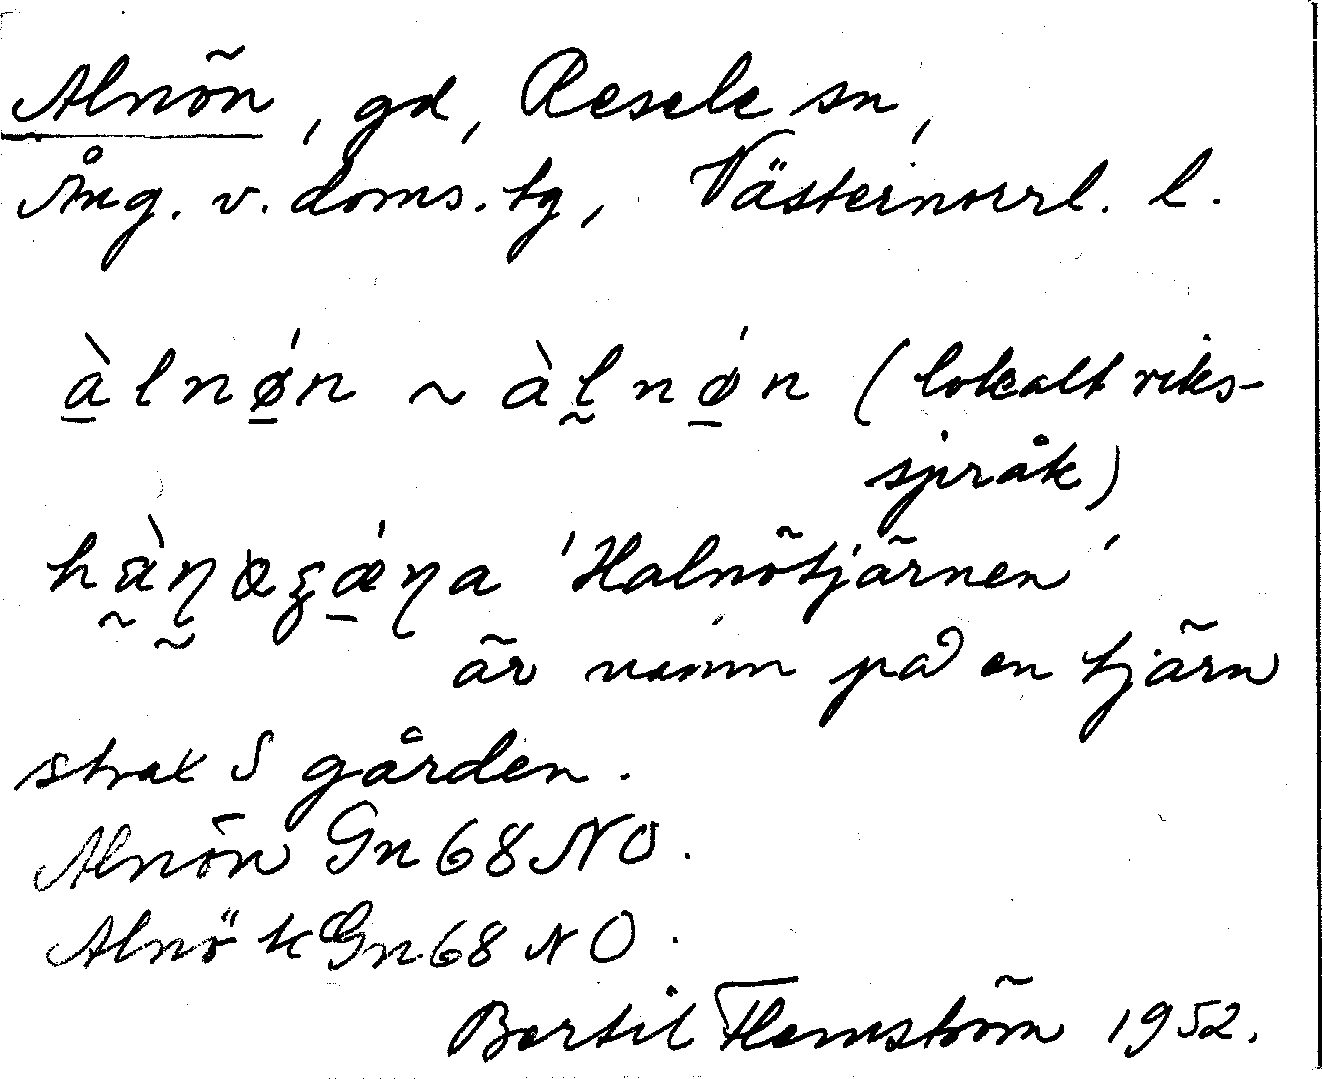 Alnön, gd, Resele sn,
Ång. v. doms. tg, Västernorrl. l.
à̱lnǿ̱n ~ àl̰nǿ̱n (lokalt riks-
språk)
'Halnötjärnen'
är namn på en tjärn
strax S gården.
Alnön Gn 68 NO.
Alnö k Gn 68 NO.
Bertil Flemström 1952.